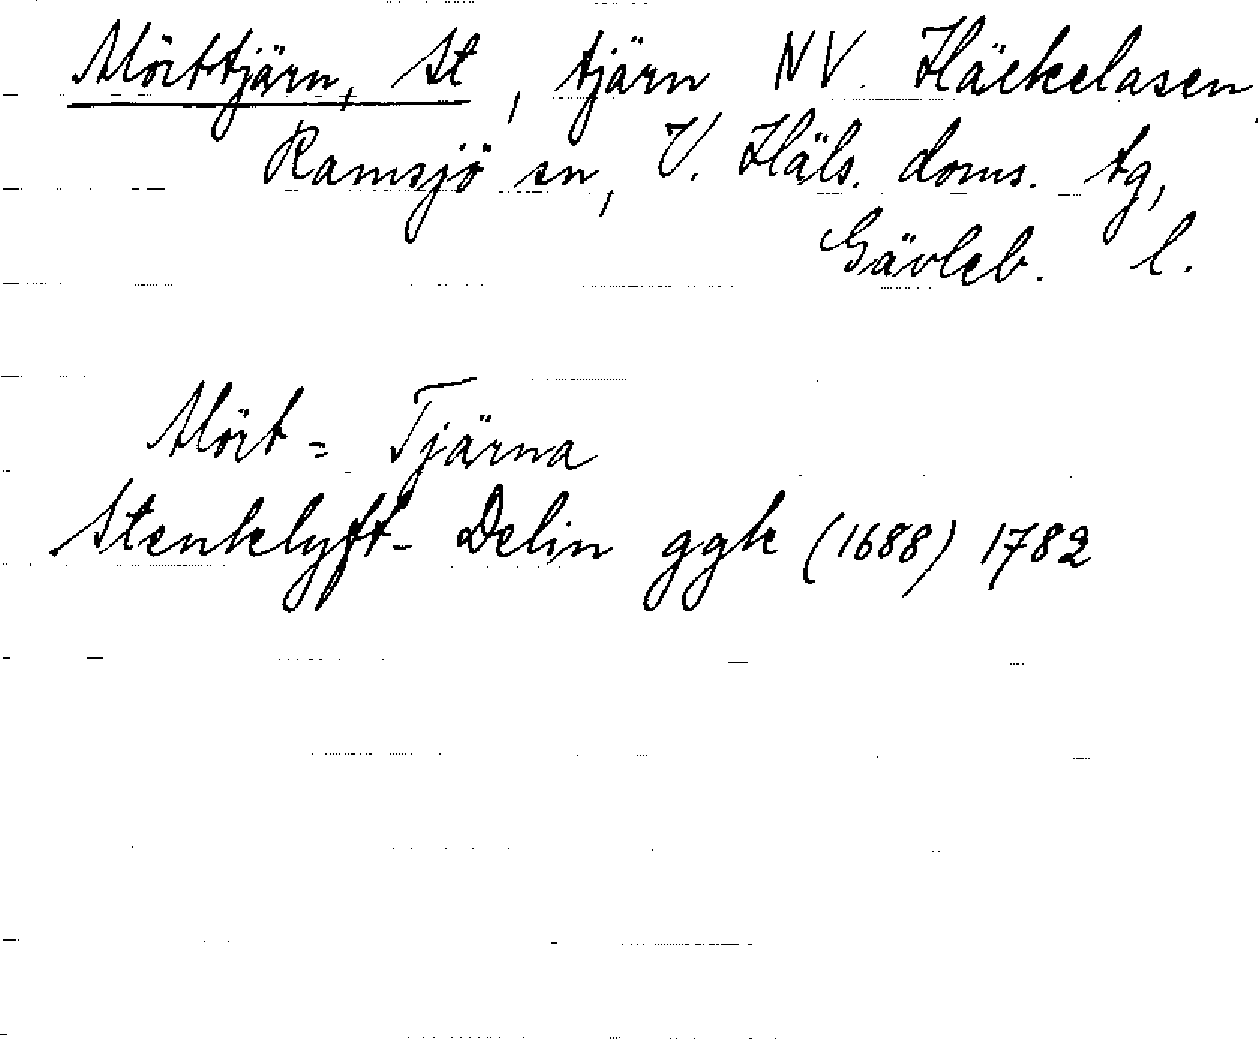 Mörttjärn, St, tjärn NV. Häckelasen
Ramsjö sn, V. Häls. doms. tg,
Gävleb. l.
Mört = Tjärna
Stenklyft- Delin ggk (1688) 1782